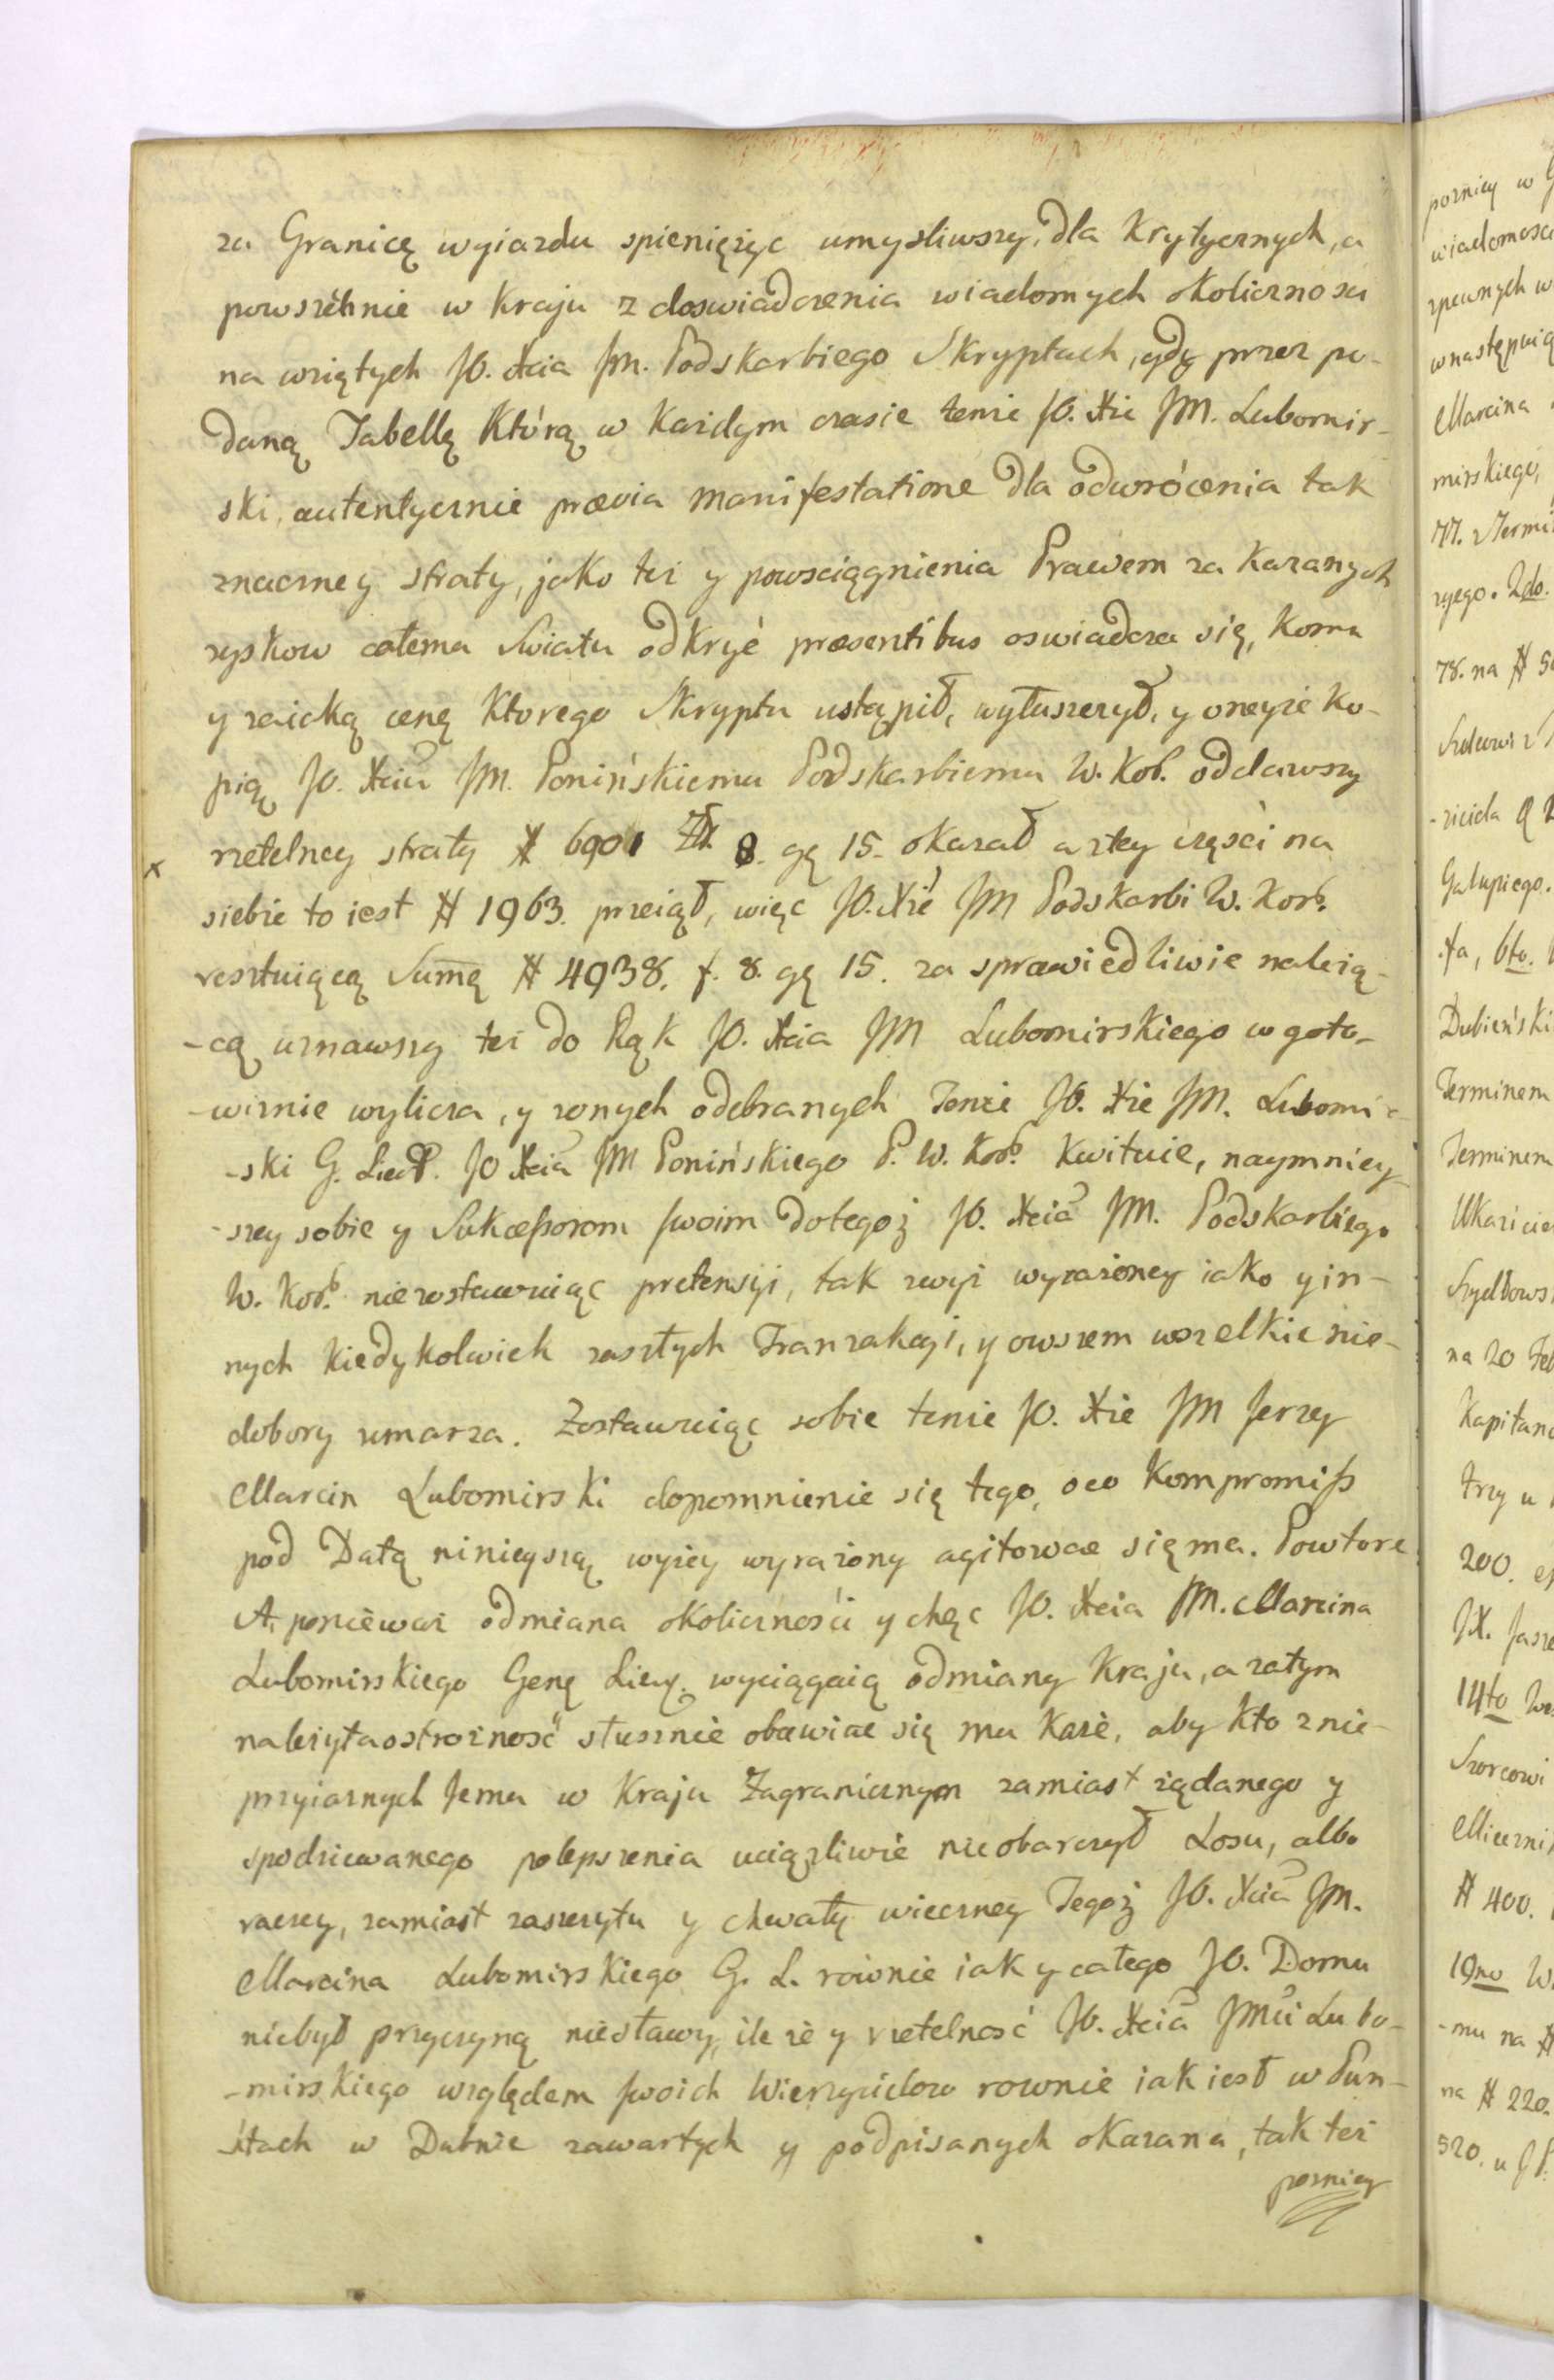 za Granicę wyiazdu spieniężyc umysliwszy, dla Krytycznych, a
powszéchnie w Kraju z doswiadczenia wiadomych okolicznosci
na wziętych JO. Xcia Jm. Podskarbiego Skryptach, gdy przez po-
daną Tabellę Którą w Kazdym czasie tenze JO. Xże JM. Lubomir-
ski, autentycznie prævia manifestatione dla odwrócenia tak
znaczney straty, jako tez y powsciągnienia Prawem za Kazanych
zyskow całemu Swiatu odkryć præsentibus oswiadcza się, Komu
y zaiaką cenę Ktorego Skryptu ustąpił, wyłuszczył, y oneyze Ko-
pią JO. Xciu JM. Ponińskiemu Podskarbiemu W. Kor. oddawszy
x rzetelney straty # 6901 Zł 8. gę 15. okazał a ztey części na
siebie to iest # 1963. przeiął, więc JO. Xże JM Podskarbi W. Kor.
resztuiącą Sumę # 4938. f. 8. gę 15. za sprawiedliwie nalezą-
-cą uznawszy tez do Rąk JO. Xcia JM Lubomirskiego w goto-
-wiznie wylicza, y zonych odebranych Tenze JO. Xze JM. Lubomir
-ski G. Lieut. JO Xcia JM Ponińskiego P. W. Kor. Kwituie, naymniey
-szey sobie y Sukcessorom swoim dotegoż JO. Xcia JM. Podskarbiego
W. Kor. niezostawuiąc pretensyi, tak zwyz wyrazoney iako y in-
nych kiedykolwiek zaszłych Tranzakcyi, y owszem wszelkie nie-
dobory umarza. Zostawuiąc sobie tenze JO. Xże JM Jerzy
Marcin Lubomirski dopomnienie się tego, oco Kompromiss
pod Datą ninieyszą wyzey wyrazony agitowac się ma. Powtore
A, poniéwaz odmiana okolicznosći y chęc JO. Xcia JM. Marcina
Lubomirskiego Genę Lieu. wyciągaią odmiany Kraju, a zatym
nalezyta ostrozność słusznie obawiac się mu Kaze, aby Kto z nie-
przyiaznych Jemu w Kraju Zagranicznym zamiast ządanego y
spodziewanego polepszenia uciązliwie nieobarczył Losu, albo
raczey, zamiast zaszczytu y chwały wieczney Tegoż JO. Xcia JM.
Marcina Lubomirskiego G. L. rownie iak y całego JO. Domu
niebył przyczyną niesławy, ile zé y rzetelność JO. Xcia JMci Lubo-
-mirskiego względem swoich Wierzycielow rownie iak iest w Pun-
-ktach w Dubnie zawartych y podpisanych okazana, tak tez
pozniey
pozniey w
wiadomosci
zpewnych w
wnastępuią
Marcina
mirskiego,
77. Termi
zyego. 2do.
78. na #
Galupiego.
.ta, 6to.
Dubieński
Terminem
Terminem
Ukaziciel
Szydłows
na 20 Feb
Kapitano
trzy u
200.
JX. Jasze
14to
Szorcowi
Mieczni
# 400.
19no W.
-mu na #
na # 220.
520. u JP.